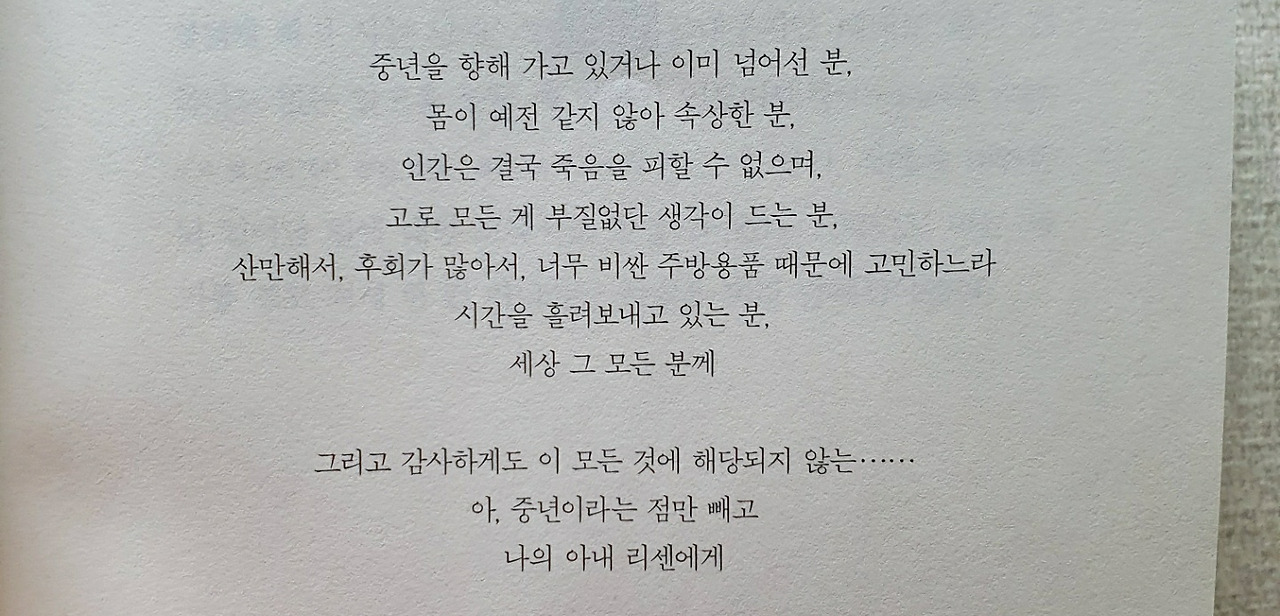 중년을 향해 가고 있거나 이미 넘어선 분,
몸이 예전 같지 않아 속상한 분,
인간은 결국 죽음을 피할 수 없으며,
고로 모든 게 부질없단 생각이 드는 분,
산만해서, 후회가 많아서, 너무 비싼 주방용품 때문에 고민하느라
시간을 흘려보내고 있는 분,
세상 그 모든 분께
그리고 감사하게도 이 모든 것에 해당되지 않는……
아, 중년이라는 점만 빼고
나의 아내 리센에게